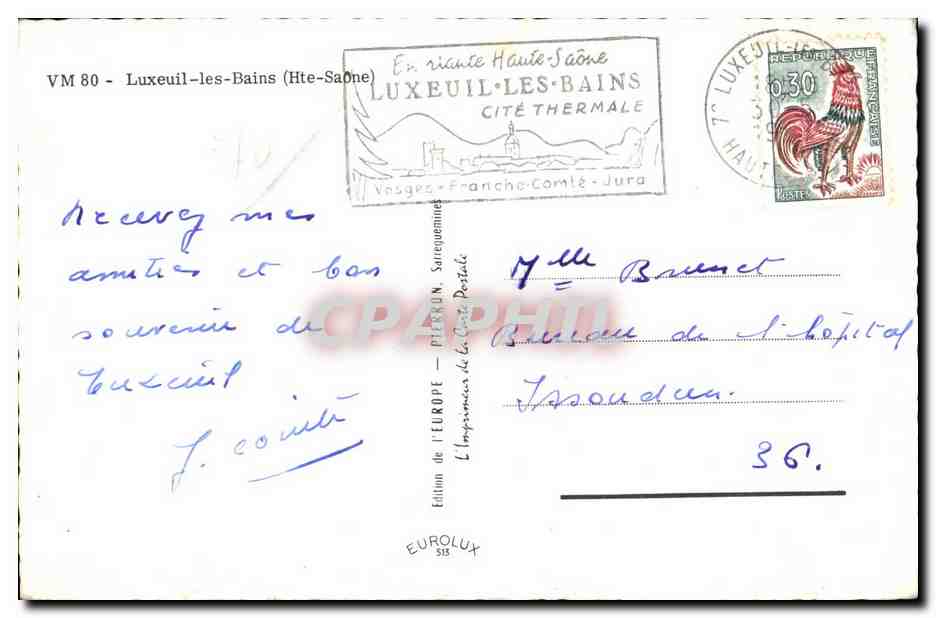 VM 80 - Luxeuil-les-Bains (Hte-Saône)
En riante Haute-Saône
LUXEUIL•LES•BAINS
CITÉ THERMALE
Vosges - Franche-Comté - Jura
70 LUXEUIL-LES-
HAUT
REPUBLIQUE FRANÇAISE
0,30
POSTES
Recevez mes
amitiés et bon
souvenir de
Luxeuil
J. Comte
Edition de l'EUROPE — PIERRON, Sarreguemines
L'Imprimeur de la Carte Postale
CPAPHIL
Mlle Brunet
Bureau de l'hôpital
Issoudun.
36.
EUROLUX
513